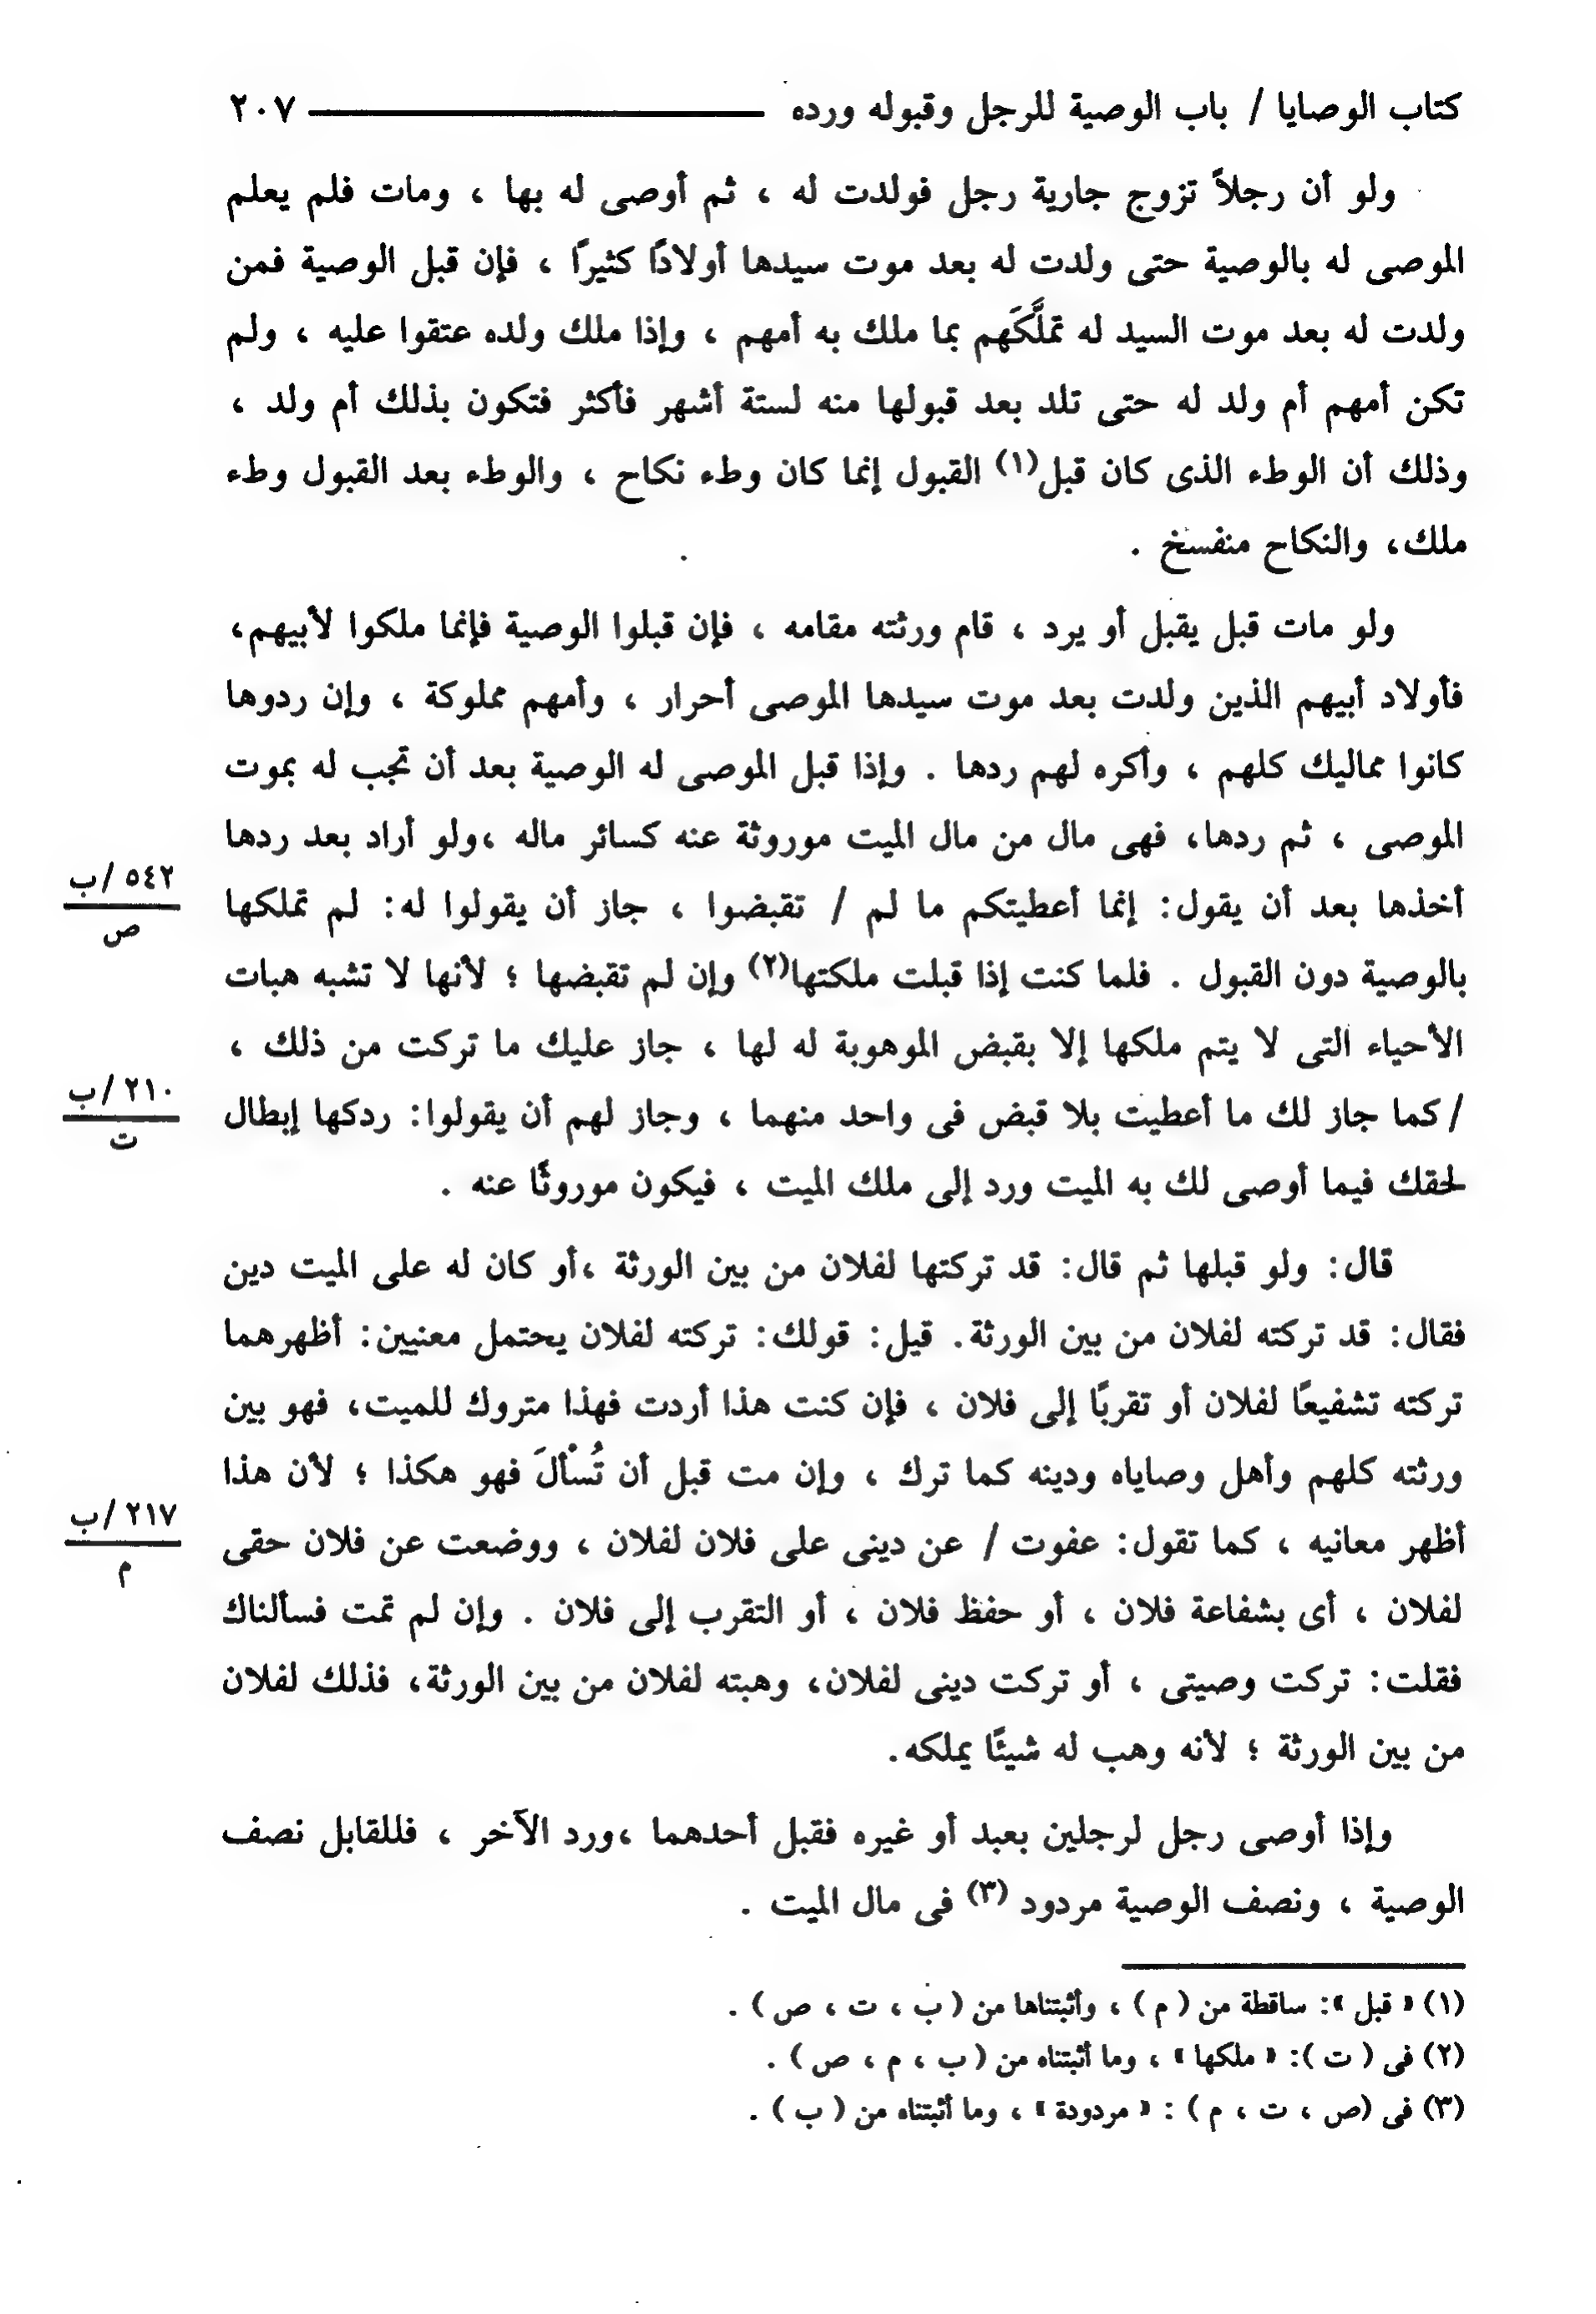 كتاب الوصايا / باب الوصية للرجل وقبوله ورده ــــــــــــــ ٢٠٧
ولو أن رجلاً تزوج جارية رجل فولدت له ، ثم أوصى له بها ، ومات فلم يعلم
الموصى له بالوصية حتى ولدت له بعد موت سيدها أولادًا كثيرًا ، فإن قبل الوصية فمن
ولدت له بعد موت السيد له تملَّكَهم بما ملك به أمهم ، وإذا ملك ولده عتقوا عليه ، ولم
تكن أمهم أم ولد له حتى تلد بعد قبولها منه لستة أشهر فأكثر فتكون بذلك أم ولد ،
وذلك أن الوطء الذى كان قبل(١) القبول إنما كان وطء نكاح ، والوطء بعد القبول وطء
ملك، والنكاح منفسخ .
ولو مات قبل يقبل أو يرد ، قام ورثته مقامه ، فإن قبلوا الوصية فإنما ملكوا لأبيهم،
فأولاد أبيهم الذين ولدت بعد موت سيدها الموصى أحرار ، وأمهم مملوكة ، وإن ردوها
كانوا مماليك كلهم ، وأكره لهم ردها . وإذا قبل الموصى له الوصية بعد أن تجب له بموت
الموصى ، ثم ردها، فهى مال من مال الميت موروثة عنه كسائر ماله ،ولو أراد بعد ردها
٥٤٢ /ب
ص
أخذها بعد أن يقول: إنما أعطيتكم ما لم / تقبضوا ، جاز أن يقولوا له: لم تملكها
بالوصية دون القبول . فلما كنت إذا قبلت ملكتها(٢) وإن لم تقبضها ؛ لأنها لا تشبه هبات
الأحياء التى لا يتم ملكها إلا بقبض الموهوبة له لها ، جاز عليك ما تركت من ذلك ،
٢١٠ /ب
ت
/ كما جاز لك ما أعطيت بلا قبض فى واحد منهما ، وجاز لهم أن يقولوا: ردكها إبطال
لحقك فيما أوصى لك به الميت ورد إلى ملك الميت ، فيكون موروثًا عنه .
قال: ولو قبلها ثم قال: قد تركتها لفلان من بين الورثة ،أو كان له على الميت دين
فقال: قد تركته لفلان من بين الورثة. قيل: قولك: تركته لفلان يحتمل معنيين: أظهرهما
تركته تشفيعًا لفلان أو تقربًا إلى فلان ، فإن كنت هذا أردت فهذا متروك للميت، فهو بين
ورثته كلهم وأهل وصاياه ودينه كما ترك ، وإن مت قبل أن تُسْألَ فهو هكذا ؛ لأن هذا
٢١٧ /ب
م
أظهر معانيه ، كما تقول: عفوت / عن دينى على فلان لفلان ، ووضعت عن فلان حقى
لفلان ، أى بشفاعة فلان ، أو حفظ فلان ، أو التقرب إلى فلان . وإن لم تمت فسألناك
فقلت: تركت وصيتى ، أو تركت دينى لفلان، وهبته لفلان من بين الورثة، فذلك لفلان
من بين الورثة ؛ لأنه وهب له شيئًا يملكه.
وإذا أوصى رجل لرجلين بعبد أو غيره فقبل أحدهما ،ورد الآخر ، فللقابل نصف
الوصية ، ونصف الوصية مردود (٣) فى مال الميت .
(١) « قبل »: ساقطة من ( م ) ، وأثبتناها من ( ب ، ت ، ص ) .
(٢) فى ( ت ): « ملكها » ، وما أثبتناه من ( ب ، م ، ص ) .
(٣) فى (ص ، ت ، م ) : « مردودة » ، وما أثبتناه من ( ب ) .